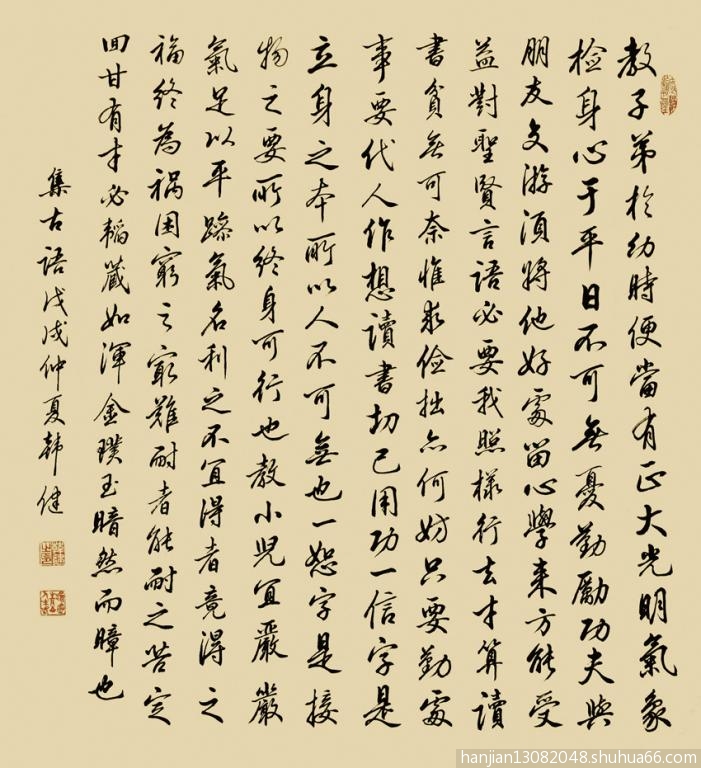 教子弟於幼時便當有正大光明氣象
检身心于平日不可無憂勤勵功夫與
朋友交游須將他好處留心學来方能受
益對聖賢言語必要我照樣行去才算讀
書貧無可奈惟求俭拙亦何妨只要勤處
事要代人作想讀書切己用功一信字是
立身之本所以人不可無也一恕字是接
物之要所以终身可行也教小兒宜嚴嚴
氣足以平躁氣名利之不宜得者竟得之
福终為祸困窮之窮難耐者能耐之苦定
回甘有才必韬藏如渾金璞玉暗然而暲也
集古語戊戌仲夏韩健
hanjian13082048.shuhua66.com